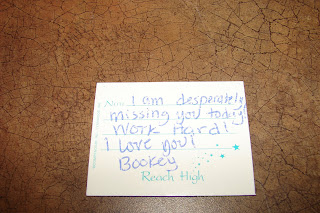 I am desperately
missing you today!
Work Hard!
I love you!
Bockey
Reach High